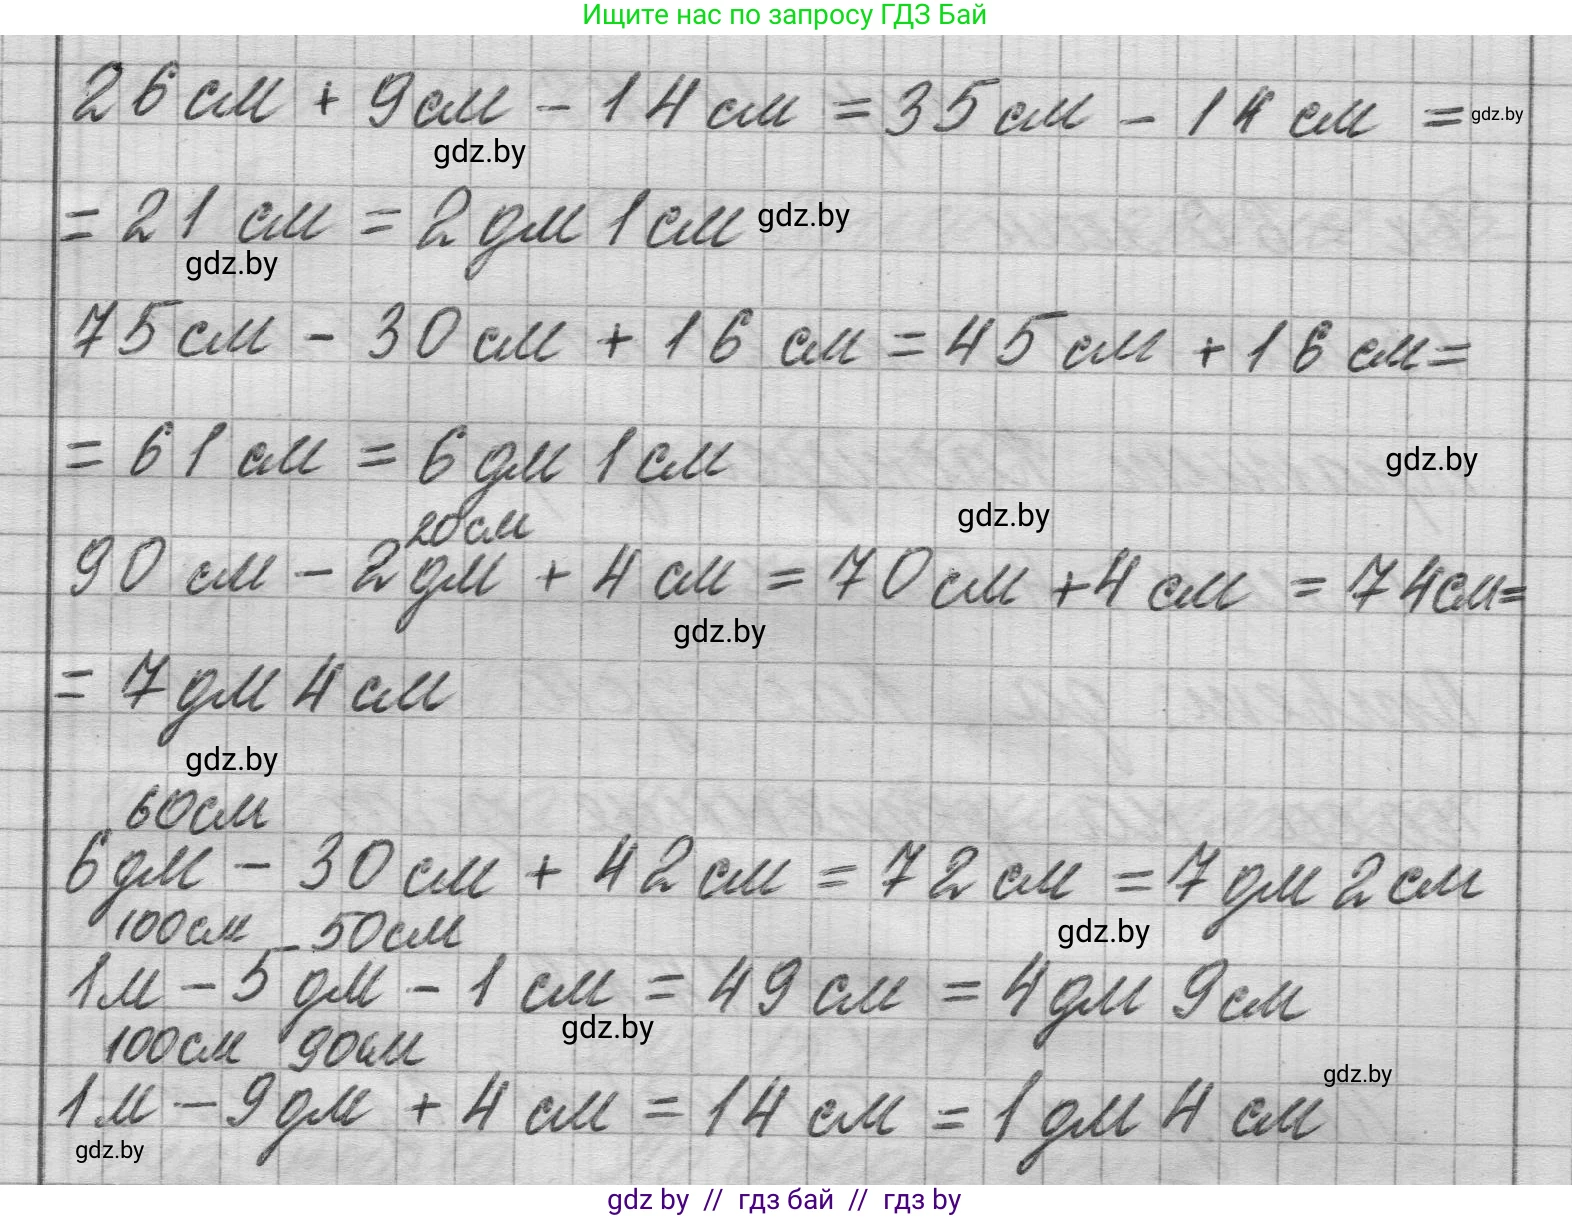 Ищите нас по запросу ГДЗ Бай
26 см + 9 см - 14 см = 35 см - 14 см = gdz.by
gdz.by
= 21 см = 2 дм 1 см gdz.by
gdz.by
75 см - 30 см + 16 см = 45 см + 16 см =
= 61 см = 6 дм 1 см gdz.by
20 см gdz.by
90 см - 2 дм + 4 см = 70 см + 4 см = 74 см =
gdz.by
= 7 дм 4 см
gdz.by
60 см
6 дм - 30 см + 42 см = 72 см = 7 дм 2 см
100 см - 50 см gdz.by
1 м - 5 дм - 1 см = 49 см = 4 дм 9 см
gdz.by
100 см 90 см
gdz.by
1 м - 9 дм + 4 см = 14 см = 1 дм 4 см
gdz.by
gdz by // гдз бай // гдз by